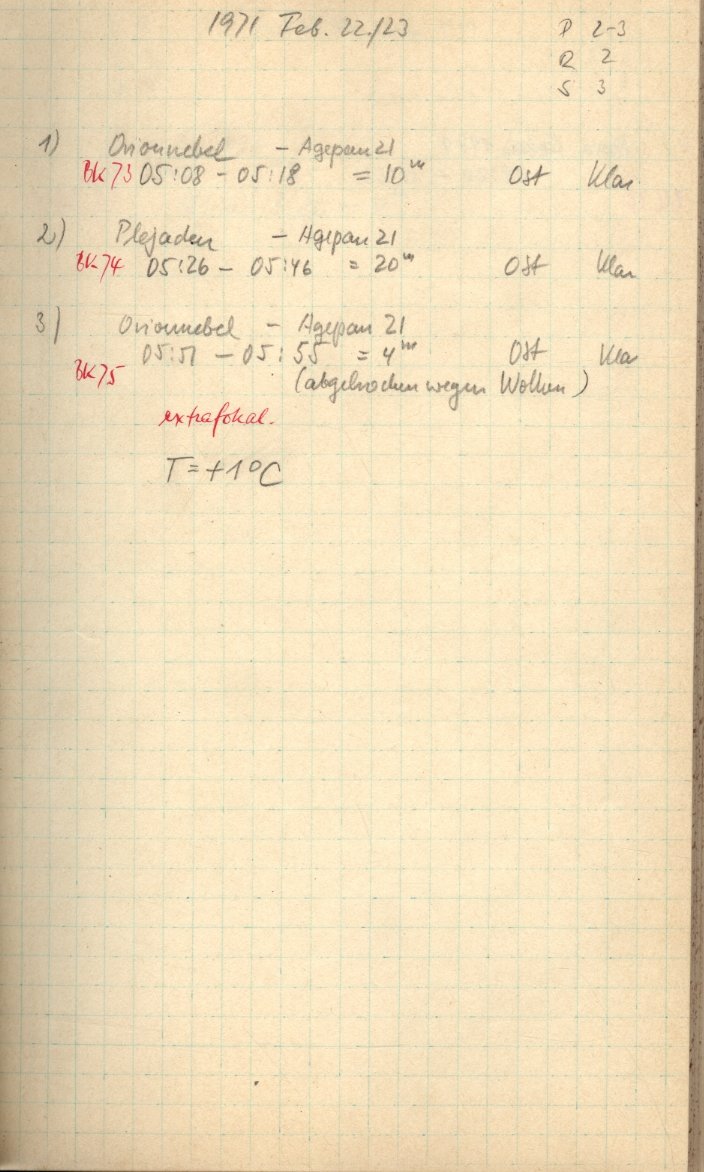 1971 Feb. 22./23
P 2-3
R 2
S 3
1) Orionnebel - Agepan 21
BK73 05:08 - 05:18 = 10m Ost klar
2) Plejaden - Agepan 21
BK74 05:26 - 05:46 = 20m Ost klar
3) Orionnebel - Agepan 21
05:51 - 05:55 = 4m Ost klar
BK75 (abgebrochen wegen Wolken)
extrafokal.
T = +1°C